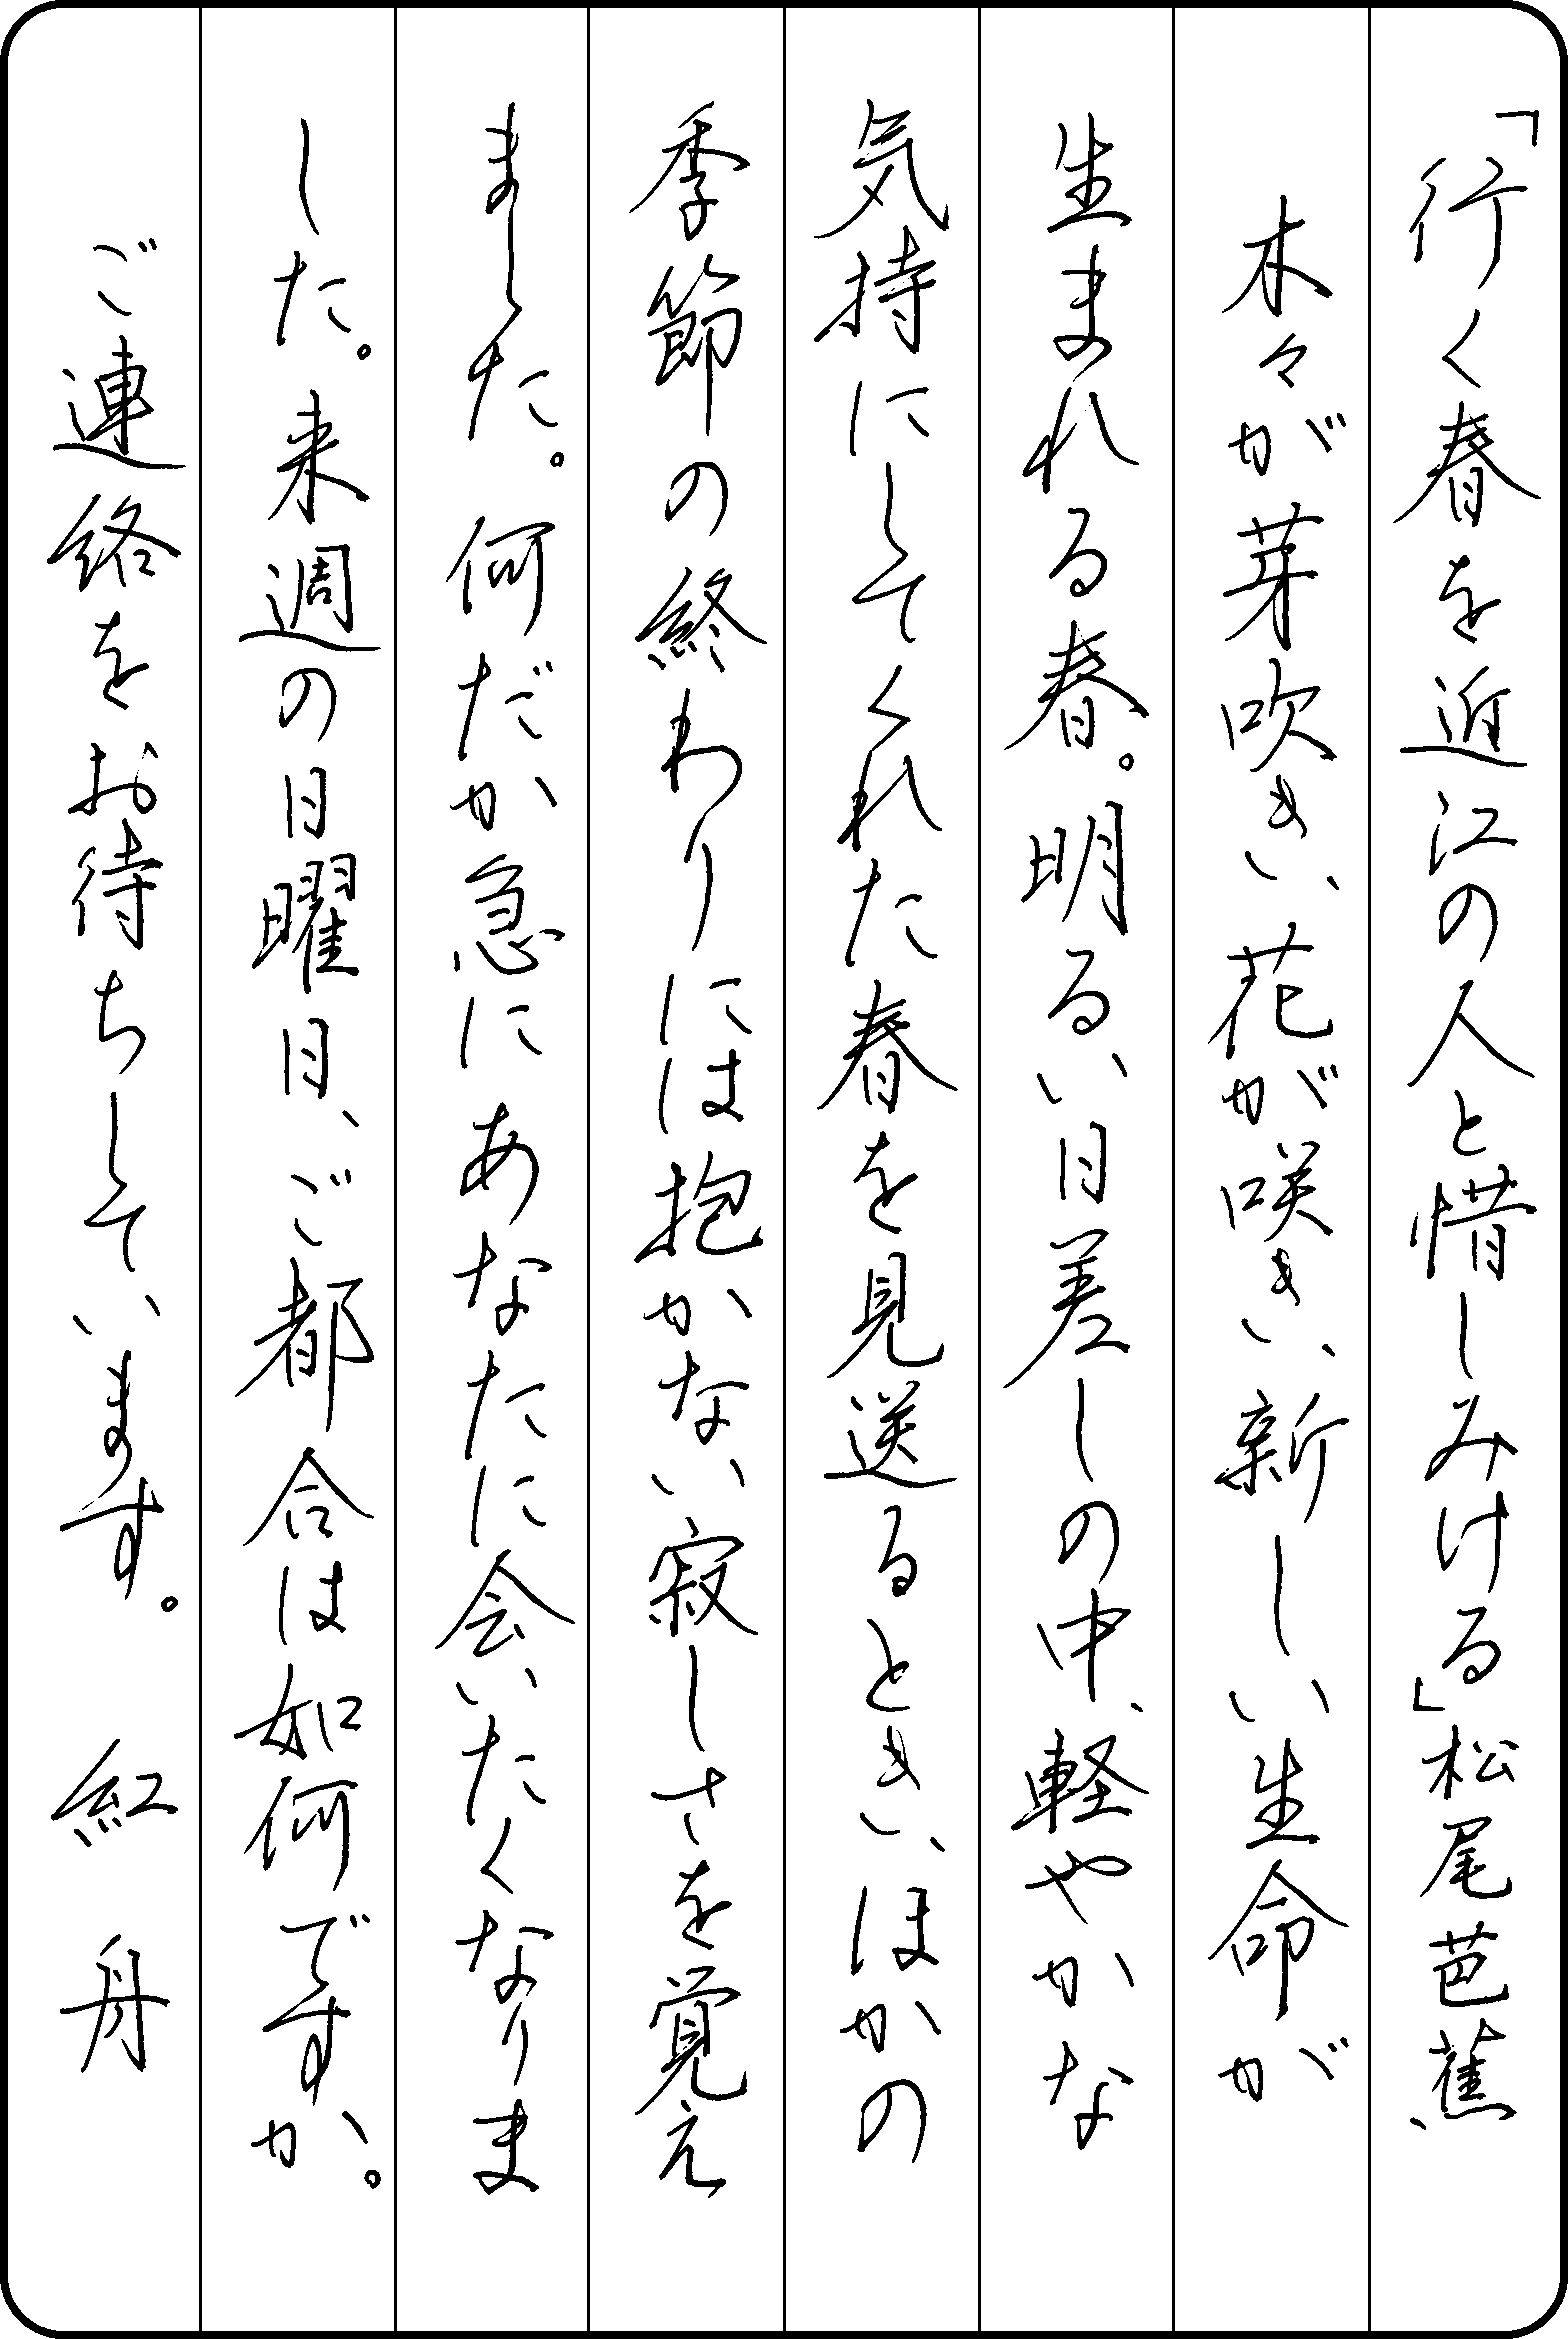 「行く春を近江の人と惜しみける」松尾芭蕉、
木々が芽吹き、花が咲き、新しい生命が
生まれる春。明るい日差しの中、軽やかな
気持にしてくれた春を見送るとき、ほかの
季節の終わりには抱かない寂しさを覚え
ました。何だか急にあなたに会いたくなりま
した。来週の日曜日、ご都合は如何ですか。
ご連絡をお待ちしています。 紅舟